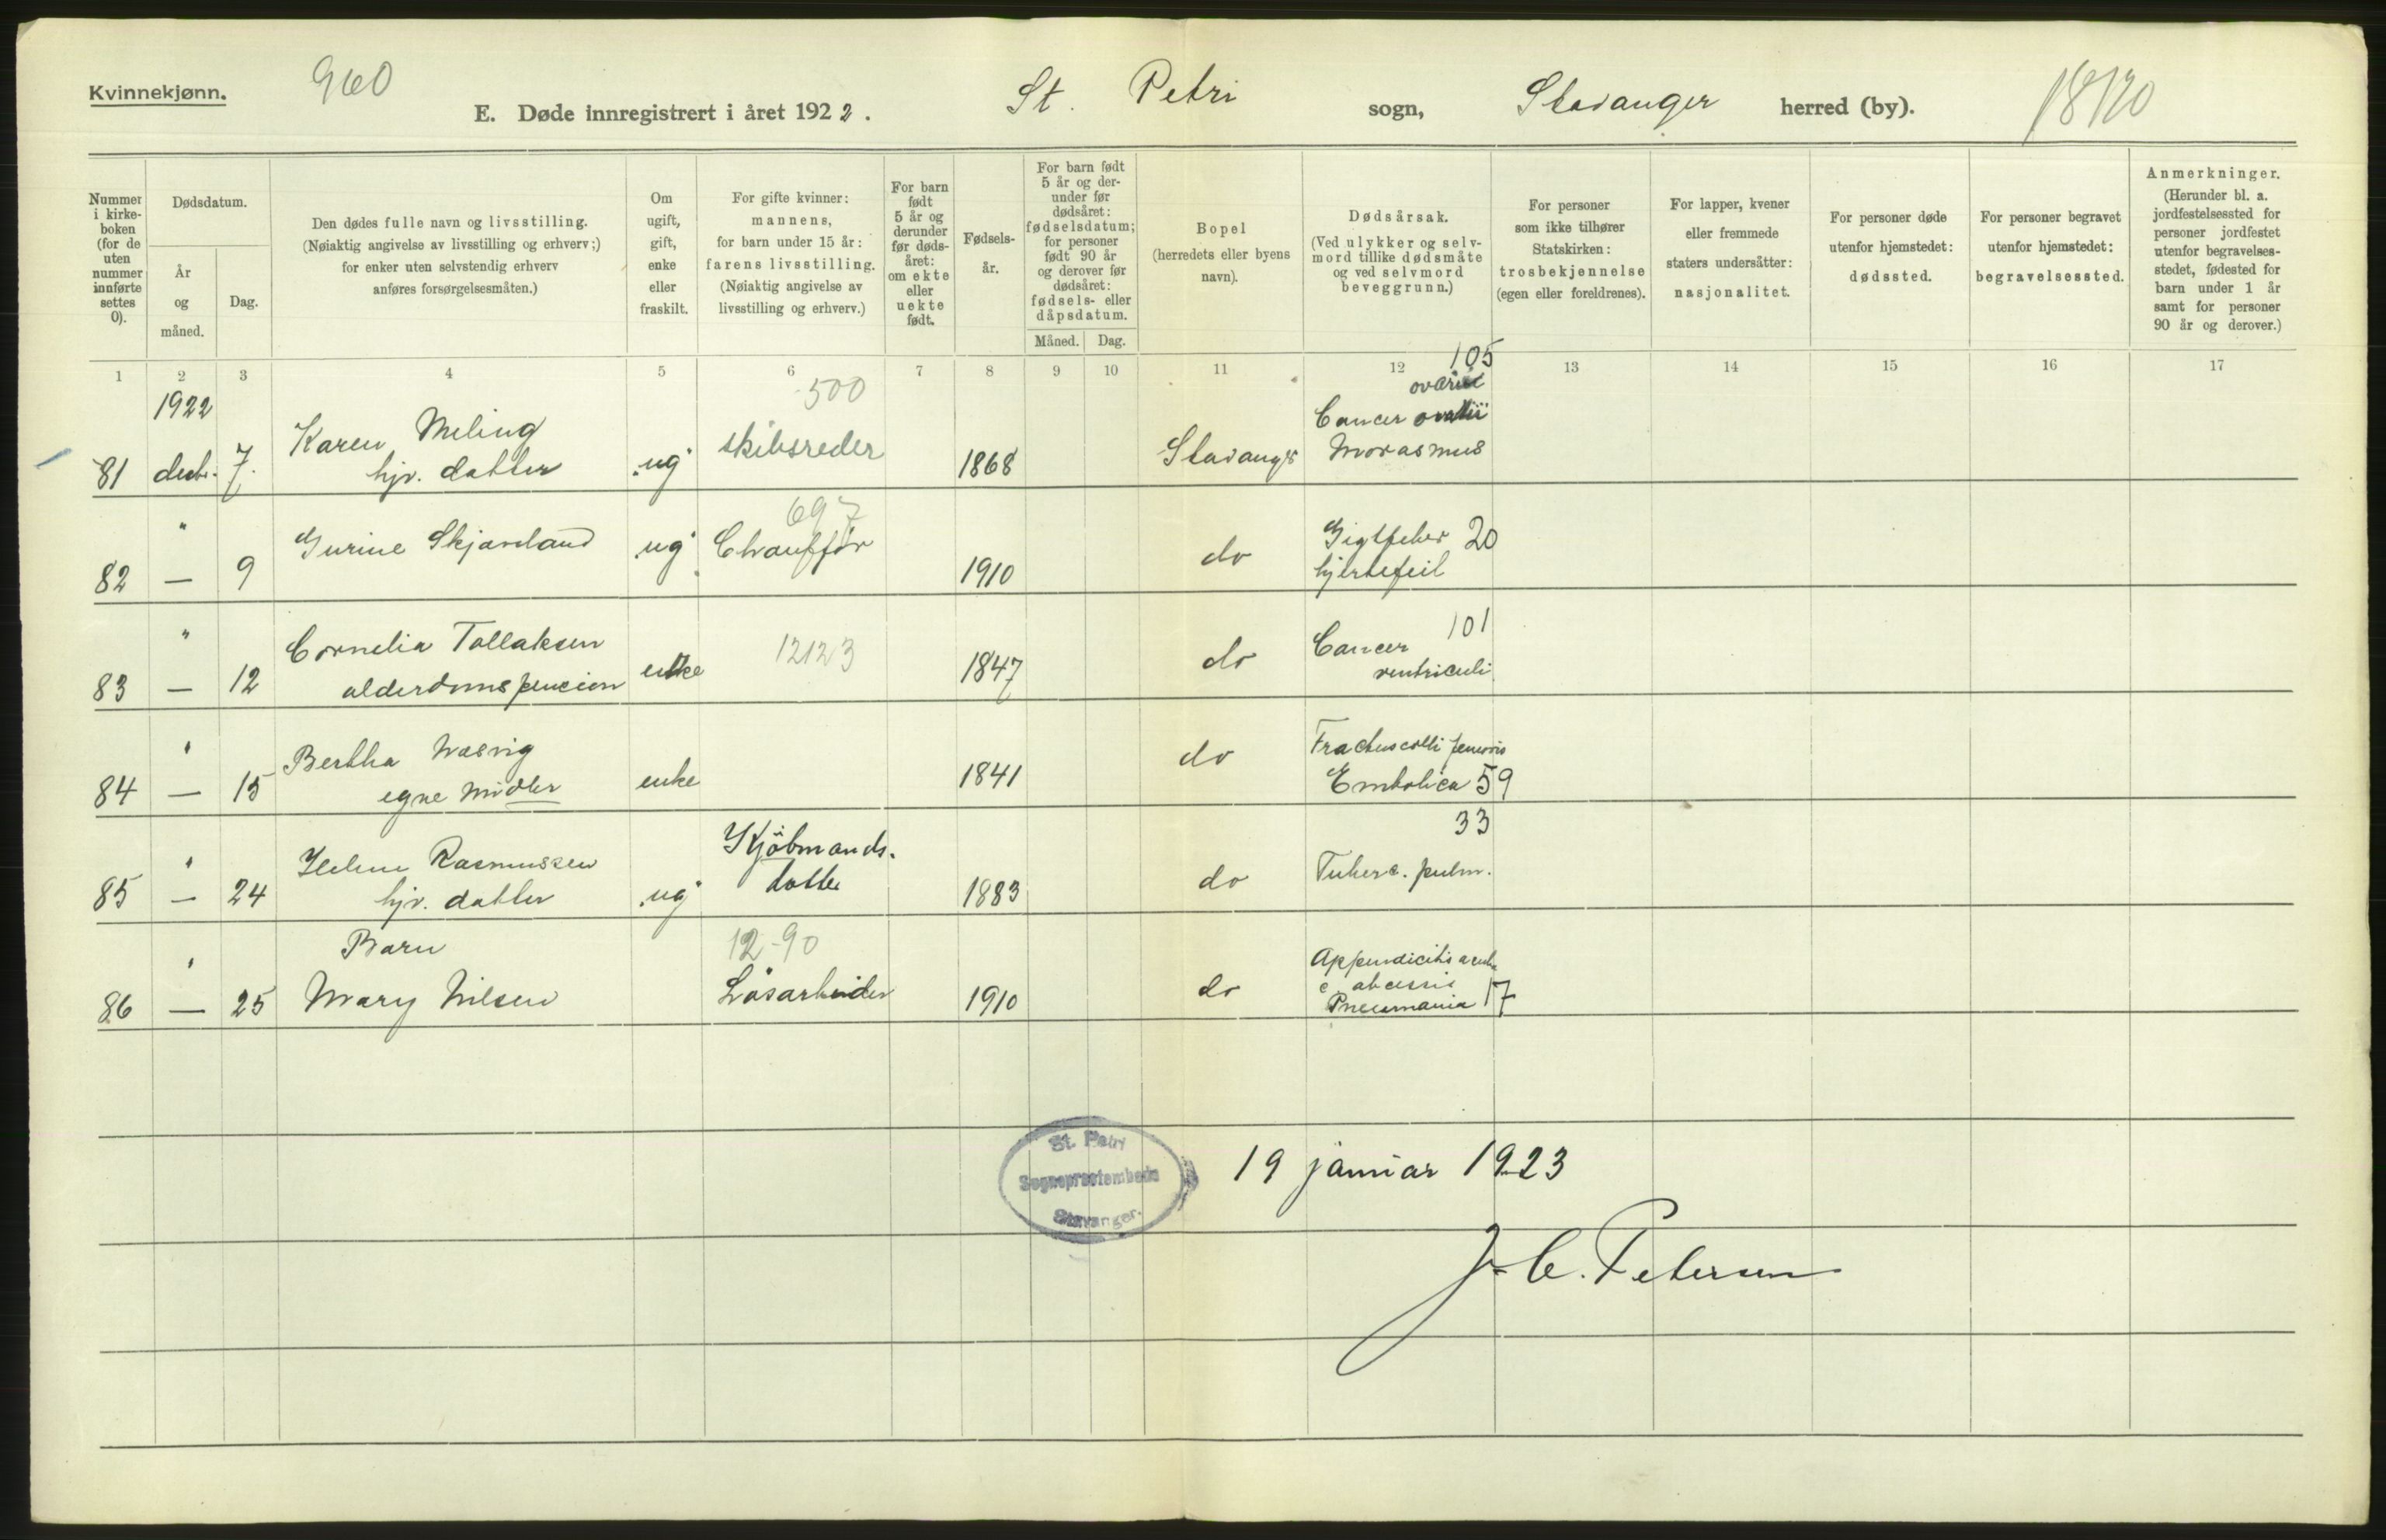 Kvinnekjønn.
960
E. Døde innregistrert i året 1922.
St. Petri sogn, Stavanger herred (by).
18120
Nummer i kirke-boken (for de uten nummer innførte settes 0).
Dødsdatum.
År og måned.
Dag.
Den dødes fulle navn og livsstilling.
(Nøiaktig angivelse av livsstilling og erhverv;)
for enker uten selvstendig erhverv
anføres forsørgelsesmåten.)
Om ugift, gift, enke eller fraskilt.
For gifte kvinner:
mannens,
for barn under 15 år:
farens livsstilling.
(Nøiaktig angivelse av
livsstilling og erhverv.)
For barn født 5 år og derunder før døds-året: om ekte eller uekte født.
Fødsels-år.
For barn født 5 år og der-under før dødsåret: fødselsdatum; for personer født 90 år og derover før dødsåret: fødsels- eller dåpsdatum.
Måned. Dag.
Bopel
(herredets eller byens
navn).
Dødsårsak.
(Ved ulykker og selv-
mord tillike dødsmåte
og ved selvmord
beveggrunn.)
For personer
som ikke tilhører
Statskirken:
trosbekjennelse
(egen eller foreldrenes).
For lapper, kvener
eller fremmede
staters undersåtter:
nasjonalitet.
For personer døde
utenfor hjemstedet:
dødssted.
For personer begravet
utenfor hjemstedet:
begravelsessted.
Anmerkninger.
(Herunder bl. a.
jordfestelsessted for
personer jordfestet
utenfor begravelses-
stedet, fødested for
barn under 1 år
samt for personer
90 år og derover.)
1 2 3 4 5 6 7 8 9 10 11 12 13 14 15 16 17
1922
500
105
ovarie
Karen Meling
Cancer
81 decbr. 7. hjv. datter ug skibsreder 1868 Stavanger Marasmus
697
" Gurine Skjæveland ug Chauffør do Gigtfeber 20
82 — 9 1910 hjertefeil
" Cornelia Tollaksen 12123 Cancer 101
83 — 12 alderdomspencion enke 1847 do ventriculi
" Bertha Wasvig do Fractus colli femoris
84 — 15 egne midler enke 1841 Embolica 59
33
" Helene Rasmussen Kjöbmands. Tuberc. pulm.
85 — 24 hjv. datter ug datter 1883 do
Barn 12-90 Appendicitis acuta
" c. abcessis
86 — 25 Mary Nilsen Løsarbeider 1910 do Pneumonia 17
St. Petri
Sogneprestembede
Stavanger.
19 januar 1923
J. C. Petersen